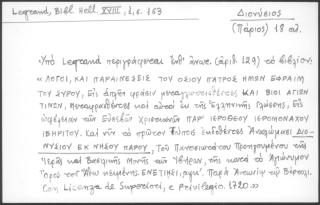 Legrand, Bibl. Hell. XVIII, 1, σ. 153
Διονύσιος
(Πάριος) 18 αι.
Ὑπὸ Legrand περιγράφεται ὑπ' ἀριθ. (ἀριθ. 129) τὸ βιβλίον:
«ΛΟΓΟΙ, ΚΑΙ ΠΑΡΑΙΝΕΣΕΙΣ ΤΟΥ ΟΣΙΟΥ ΠΑΤΡΟΣ ΗΜΩΝ ΕΦΡΑΙΜ
ΤΟΥ ΣΥΡΟΥ, Εἰς ἁπλῆν φράσιν μεταγλωττισθέντες ΚΑΙ ΒΙΟΙ ΑΓΙΩΝ
ΤΙΝΩΝ, μεταφρασθέντες καὶ αὐτοὶ ἐκ τῆς Ἑλληνικῆς γλώσσης, Εἰς
ὠφέλειαν τῶν Εὐσεβῶν Χριστιανῶν ΠΑΡ' ΙΕΡΟΘΕΟΥ ΙΕΡΟΜΟΝΑΧΟΥ
ΙΒΗΡΙΤΟΥ. Καὶ νῦν τὸ πρῶτον τύποις ἐκδοθέντες Ἀναλώμασι ΔΙΟ-
ΝΥΣΙΟΥ ΕΚ ΝΗΣΟΥ ΠΑΡΟΥ, Τοῦ Πανοσιωτάτου Προηγουμένου τῆς
Ἱερᾶς καὶ Βασιλικῆς Μονῆς τῶν Ἰβήρων, τῆς κατὰ τὸ Ἁγιώνυμον
Ὄρος τοῦ Ἄθω κειμένης ΕΝΕΤΙΗΣΙ, Παρὰ Ἀντωνίῳ τῷ Βόρτολι.
Con Licenza de Superiori, e Privilegio. 1720.»